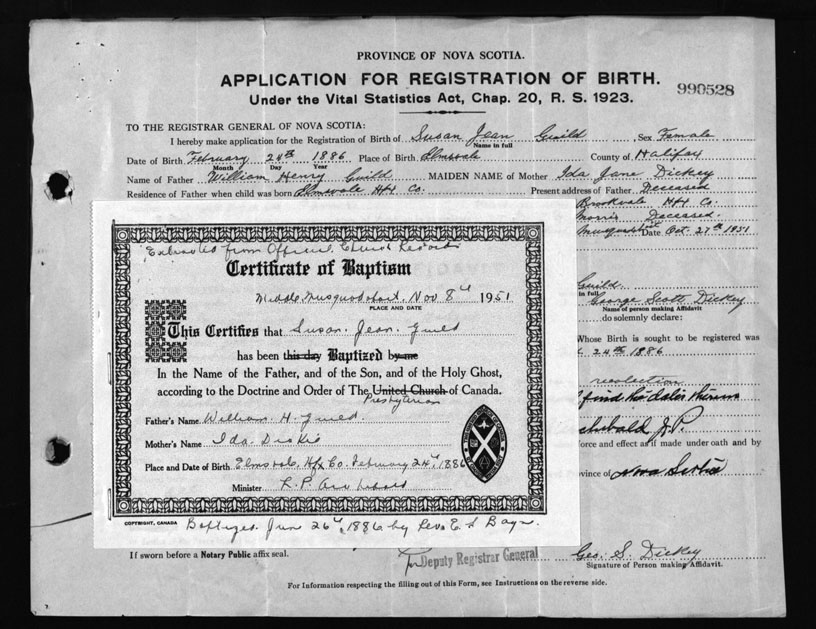 PROVINCE OF NOVA SCOTIA.
APPLICATION FOR REGISTRATION OF BIRTH.
990528
Under the Vital Statistics Act, Chap. 20, R. S. 1923.
TO THE REGISTRAR GENERAL OF NOVA SCOTIA:
I hereby make application for the Registration of Birth of Susan Jean Guild Sex Female
Name in full
Date of Birth February 24th 1886 Place of Birth Elmsvale County of Halifax
Month Day Year
Name of Father William Henry Guild MAIDEN NAME of Mother Ida Jane Dickey
Residence of Father when child was born Elmsvale Hfx Co. Present address of Father Deceased
Brookvale Hfx Co.
Morris Deceased.
Date Oct. 27th 1951
Guild
in full
George Scott Dickey
Name of person making Affidavit
do solemnly declare:
Whose Birth is sought to be registered was
24th 1886
Archibald J.P.
force and effect as if made under oath and by
Province of Nova Scotia
Extracted from Official Church Records
Certificate of Baptism
Middle Musquodoboit, Nov 8th 1951
PLACE AND DATE
This Certifies that Susan Jean Guild
has been this day Baptized by me
In the Name of the Father, and of the Son, and of the Holy Ghost,
according to the Doctrine and Order of The United Church of Canada.
Presbyterian
Father's Name William H. Guild
Mother's Name Ida Dickie
Place and Date of Birth Elmsvale, Hfx Co. February 24th, 1886
Minister R. P. Archibald
COPYRIGHT, CANADA
Baptized Jun 26th, 1886 by Rev. E. S. Bayne.
If sworn before a Notary Public affix seal.
For Deputy Registrar General
Geo. S. Dickey
Signature of Person making Affidavit.
For Information respecting the filling out of this Form, see Instructions on the reverse side.